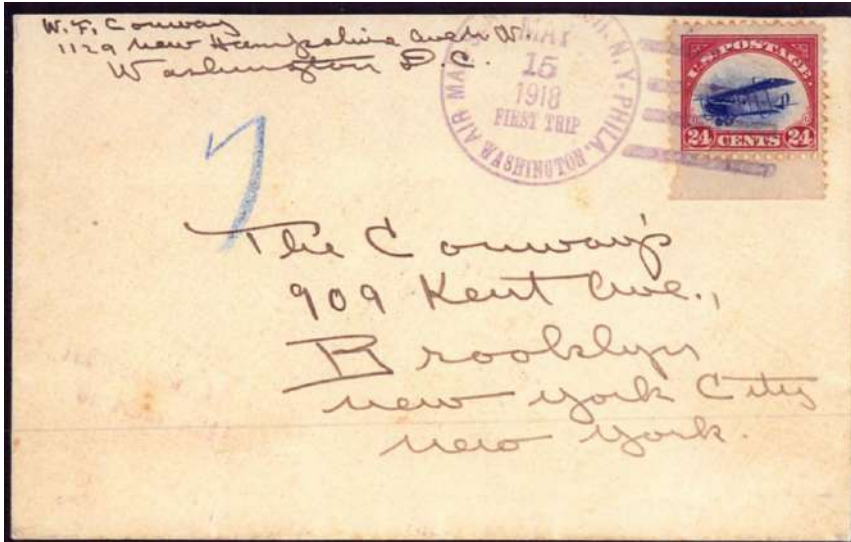 W. F. Conway
1129 New Hampshire Aven W.
Washington D.C.
AIR MAIL N.Y. PHILA. WASHINGTON
MAY
15
1918
FIRST TRIP
U.S. POSTAGE
24 CENTS 24
7
The Conway's
909 Kent Ave.,
Brooklyn
New York City
New York.